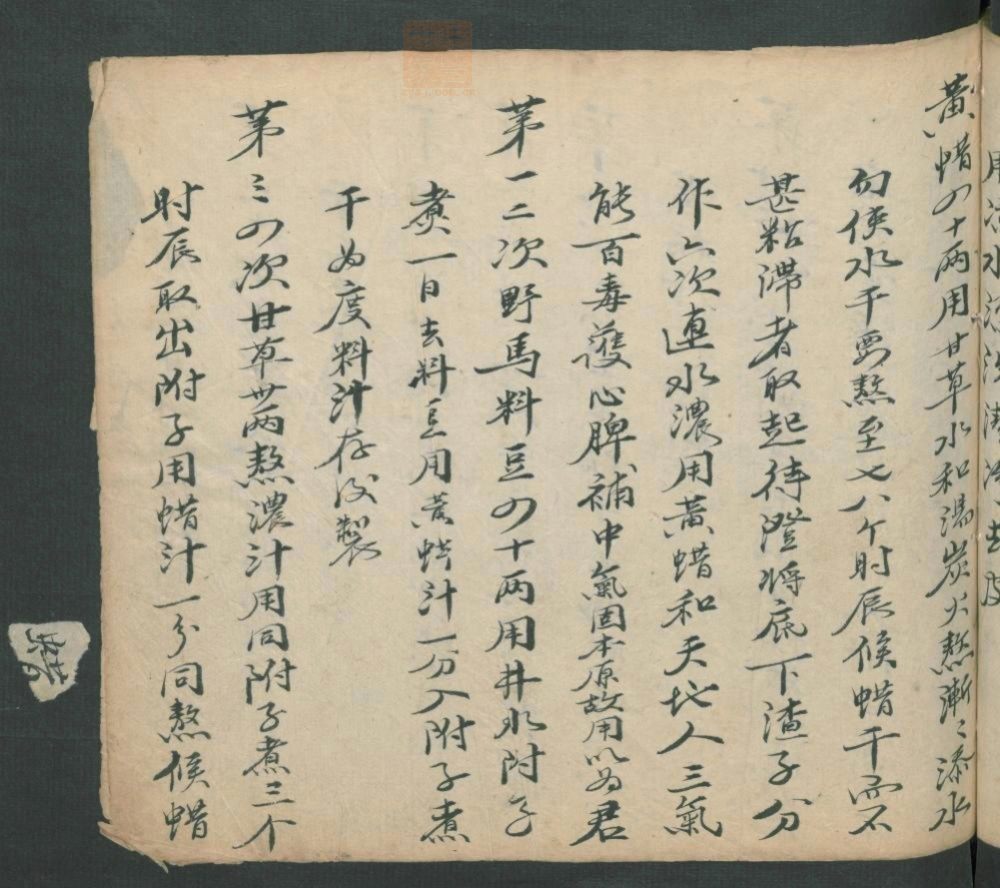 黃蜡四十兩用甘草水和湯炭火熬漸漸添水
勿侯水干要熬至七八个时辰候蜡干而不
甚粘滞者取起待澄将底下渣子分
作六次連水濃用黃蜡和天地人三氣
能百毒護心脾補中氣固本原故用以為君
第一二次野馬料豆四十两用井水附子
煮一日去料豆用黃蜡汁一分入附子煮
干为度料汁存後製
第三四次甘草卅两熬濃汁用同附子煮三个
时辰取出附子用蜡汁一分同熬候蜡